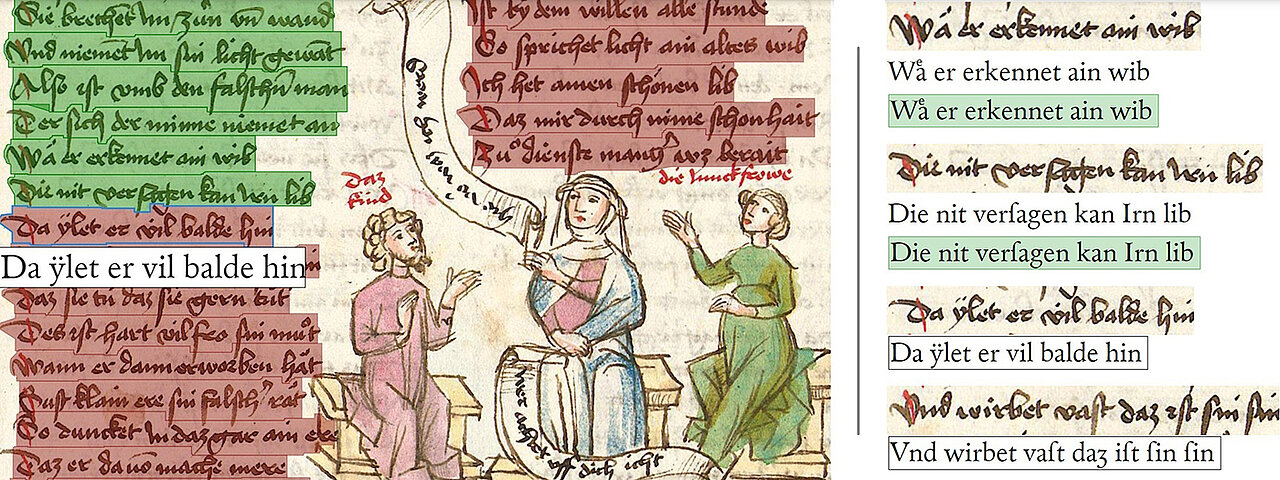 Sie brechent Im zún vn̄ wand
Vnd niemet Im ſin licht gewāt
Alſo iſt vmb den falſchn̄ man
Der ſich der minne niemet an
Wå er erkennet ain wib
Die nit verſagen kan Irn lib
Da ÿlet er vil balde hin
Da ÿlet er vil balde hin
Daʒ ſie tů daʒ ſie gern tůt
Des iſt hart vil fro ſin můt
Wann er dann erworben hat
Suſt klain ere ſin falſch' rat
So duncket In daʒ gar ain ere
Daʒ er dauō mache mere
Iſt by dem willen alle ſtunde
So ſprichet licht ain altes wib
Ich het ainen ſchönen lib
Daʒ mir durch mine ſchonhait
Zů dienſte mang' wʒ berait
daʒ
kind
die Junckfrowe
achtet vff dich icht
Wå er erkennet ain wib
Wå er erkennet ain wib
Wå er erkennet ain wib
Die nit verſagen kan Irn lib
Die nit verſagen kan Irn lib
Die nit verſagen kan Irn lib
Da ÿlet er vil balde hin
Da ÿlet er vil balde hin
Vnd wirbet vaſt daʒ iſt ſin ſin
Vnd wirbet vaſt daʒ iſt ſin ſin